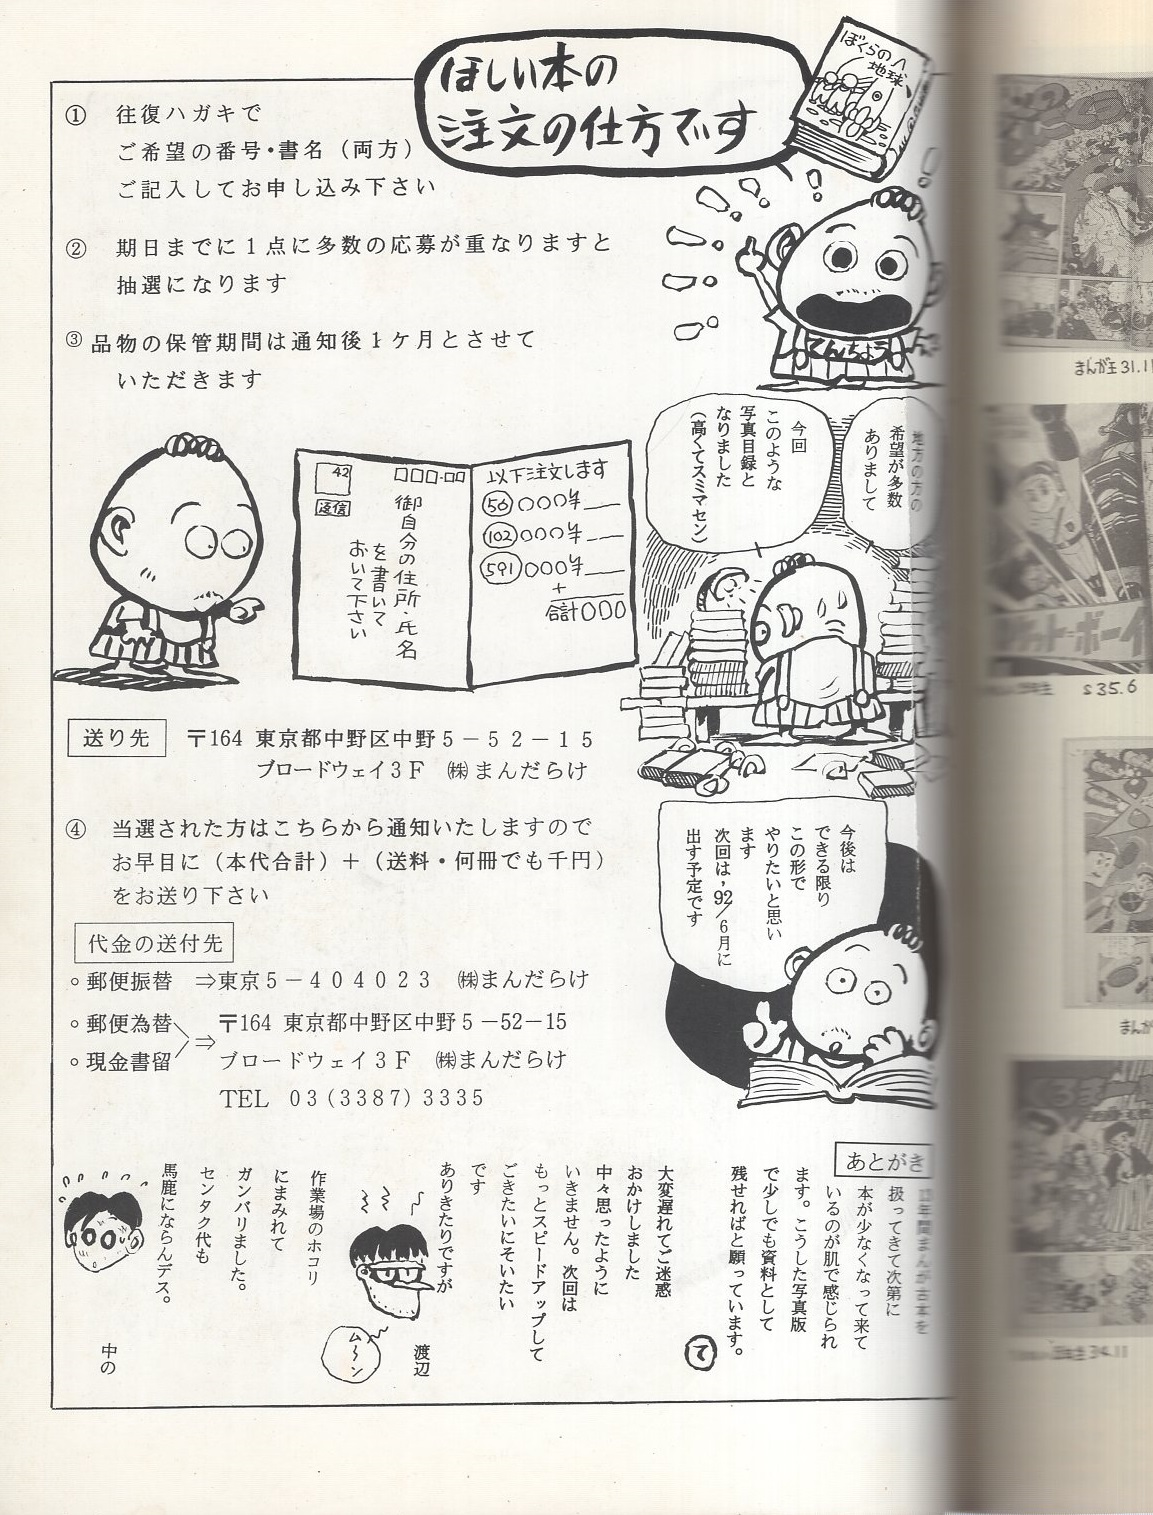 ほしい本の
注文の仕方です
ぼくらの
地球
① 往復ハガキで
ご希望の番号・書名（両方）
ご記入してお申し込み下さい
② 期日までに１点に多数の応募が重なりますと
抽選になります
③ 品物の保管期間は通知後１ケ月とさせて
いただきます
てんちょう
地方の方の
希望が多数
ありまして
今回
このような
写真目録と
なりました
（高くてスミマセン）
42
返信
□□□-□□
御自分の住所・氏名
を書いて
おいて下さい
以下注文します
56 〇〇〇¥__
102 〇〇〇¥__
591 〇〇〇¥__
+
合計〇〇〇
送り先 〒164 東京都中野区中野５－５２－１５
ブロードウェイ３Ｆ ㈱まんだらけ
④ 当選された方はこちらから通知いたしますので
お早目に（本代合計）＋（送料・何冊でも千円）
をお送り下さい
今後は
できる限り
この形で
やりたいと思い
ます
次回は、92／6月に
出す予定です
代金の送付先
○郵便振替 ⇒東京５－４０４０２３ ㈱まんだらけ
○郵便為替
○現金書留
⇒ 〒164 東京都中野区中野５－52－15
ブロードウェイ３Ｆ ㈱まんだらけ
TEL 03(3387)3335
あとがき
年間まんが古本を
扱ってきて次第に
本が少なくなって来て
いるのが肌で感じられ
ます。こうした写真版
で少しでも資料として
残せればと願っています。
て
大変遅れてご迷惑
おかけしました
中々思ったように
いきません。次回は
もっとスピードアップして
ごきたいにそいたい
です
ありきたりですが
渡辺
ム〜ン
作業場のホコリ
にまみれて
ガンバリました。
センタク代も
馬鹿にならんデス。
中の
まんが王31.11
ケット・ボーイ
S35.6
まんが
くろま
34.11